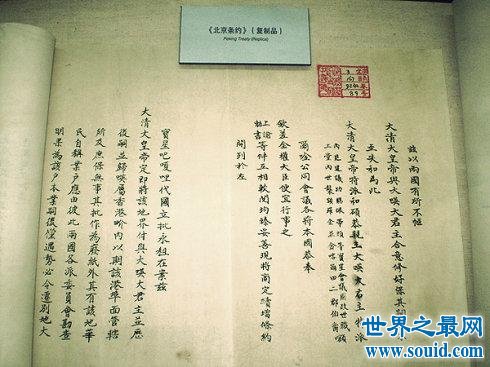 《北京条约》（复制品）
Peking Treaty (Replica)
茲以兩國有所不愜
大清大皇帝與大暎大君主合意修好保其嗣
至失和為此
大清大皇帝特派和碩恭親王大暎大君主特派
公同會議各將本國恭奉
欽差全權大臣便宜行事之
上諭敕書等件互相較閱均臻妥善現將商定續增條約
開列於左
寶星巴嗄哩代國立批永租在案茲
大清大皇帝定即將該地界付與大暎大君主並歷
後嗣並歸暎屬香港界內以期該港埠面管轄
所及庶保無事其批作為廢紙外其有該地華
民自稱業戶應由彼此兩國各派委員會勘查
明果為該戶本業嗣後倘遇勢必令遷別地大
世界之最网
www.souid.com